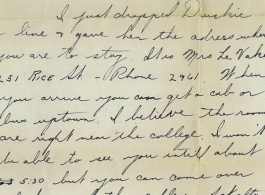 I just dropped Duckie
a line & gave her the adress where
you are to stay. It is Mrs Le Vake
231 Rice St - Phone 2941. When
you arrive you can get a cab or
bus uptown. I believe the room
are right near the college. I won't
be able to see you intill about
5:30 but you can come over